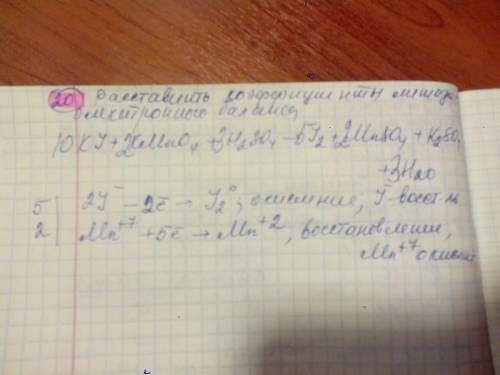 20. Расставить коэффициенты методом
электронного баланса
10KI + 2KMnO₄ + 3H₂SO₄ → 5I₂ + 2MnSO₄ + K₂SO₄
+ 3H₂O
5 | 2I⁻ - 2ē → I₂⁰, окисление, I⁻ - восст-ль
2 | Mn⁺⁷ + 5ē → Mn⁺², восстановление,
Mn⁺⁷ окисл